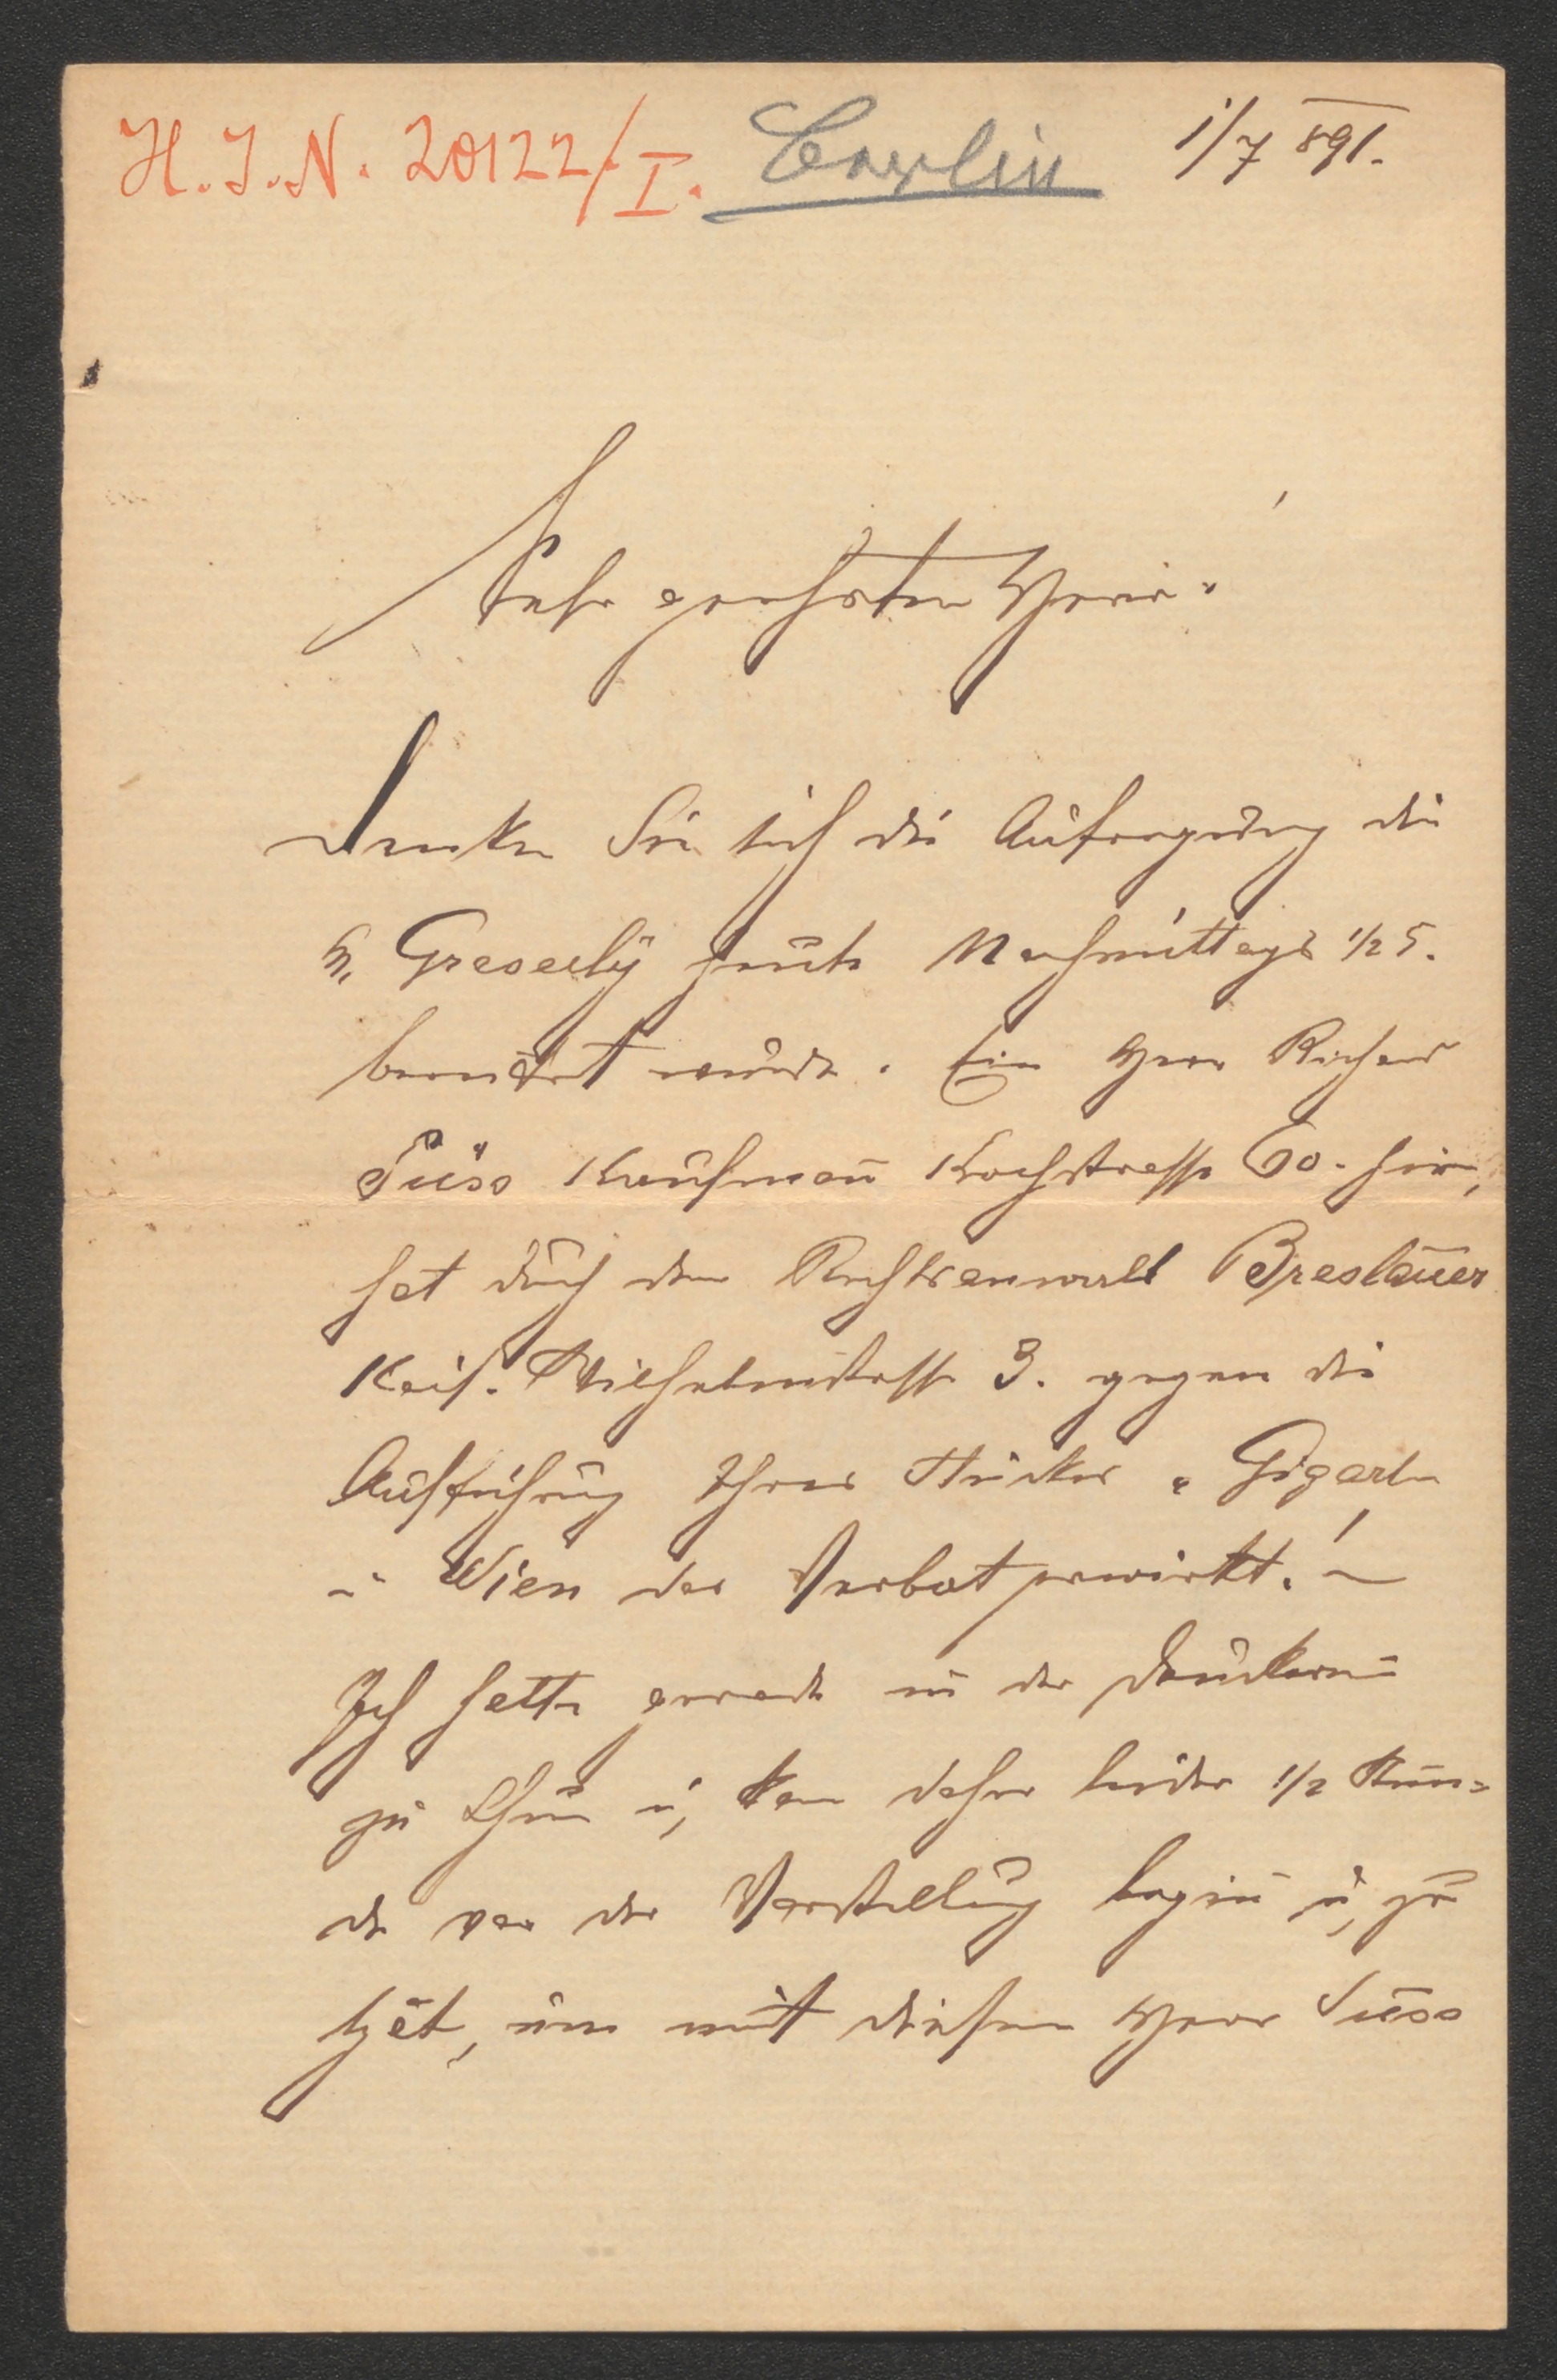 H. I. N. 20122/I. Berlin 1/7 891.
Sehr geehrter Herr!
Denken Sie sich die Aufregung die
H. Greselly heute Nachmittags 1/2 5.
bereitet wurde. Ein Herr Richard
Süss Kaufmann Kochstrasse 60. hier,
hat durch den Rechtsanwalt Breslauer
Kais. Wilhelmstrasse 3. gegen die
Aufführung Ihres Stückes „Gigerln
in Wien das Verbot erwirkt! –
Ich hatte gerade in der Druckerei
zu thun u, kam daher leider 1/2 Stun=
de vor der Vorstellung begin u, zu
spät, um mit diesem Herrn Süss